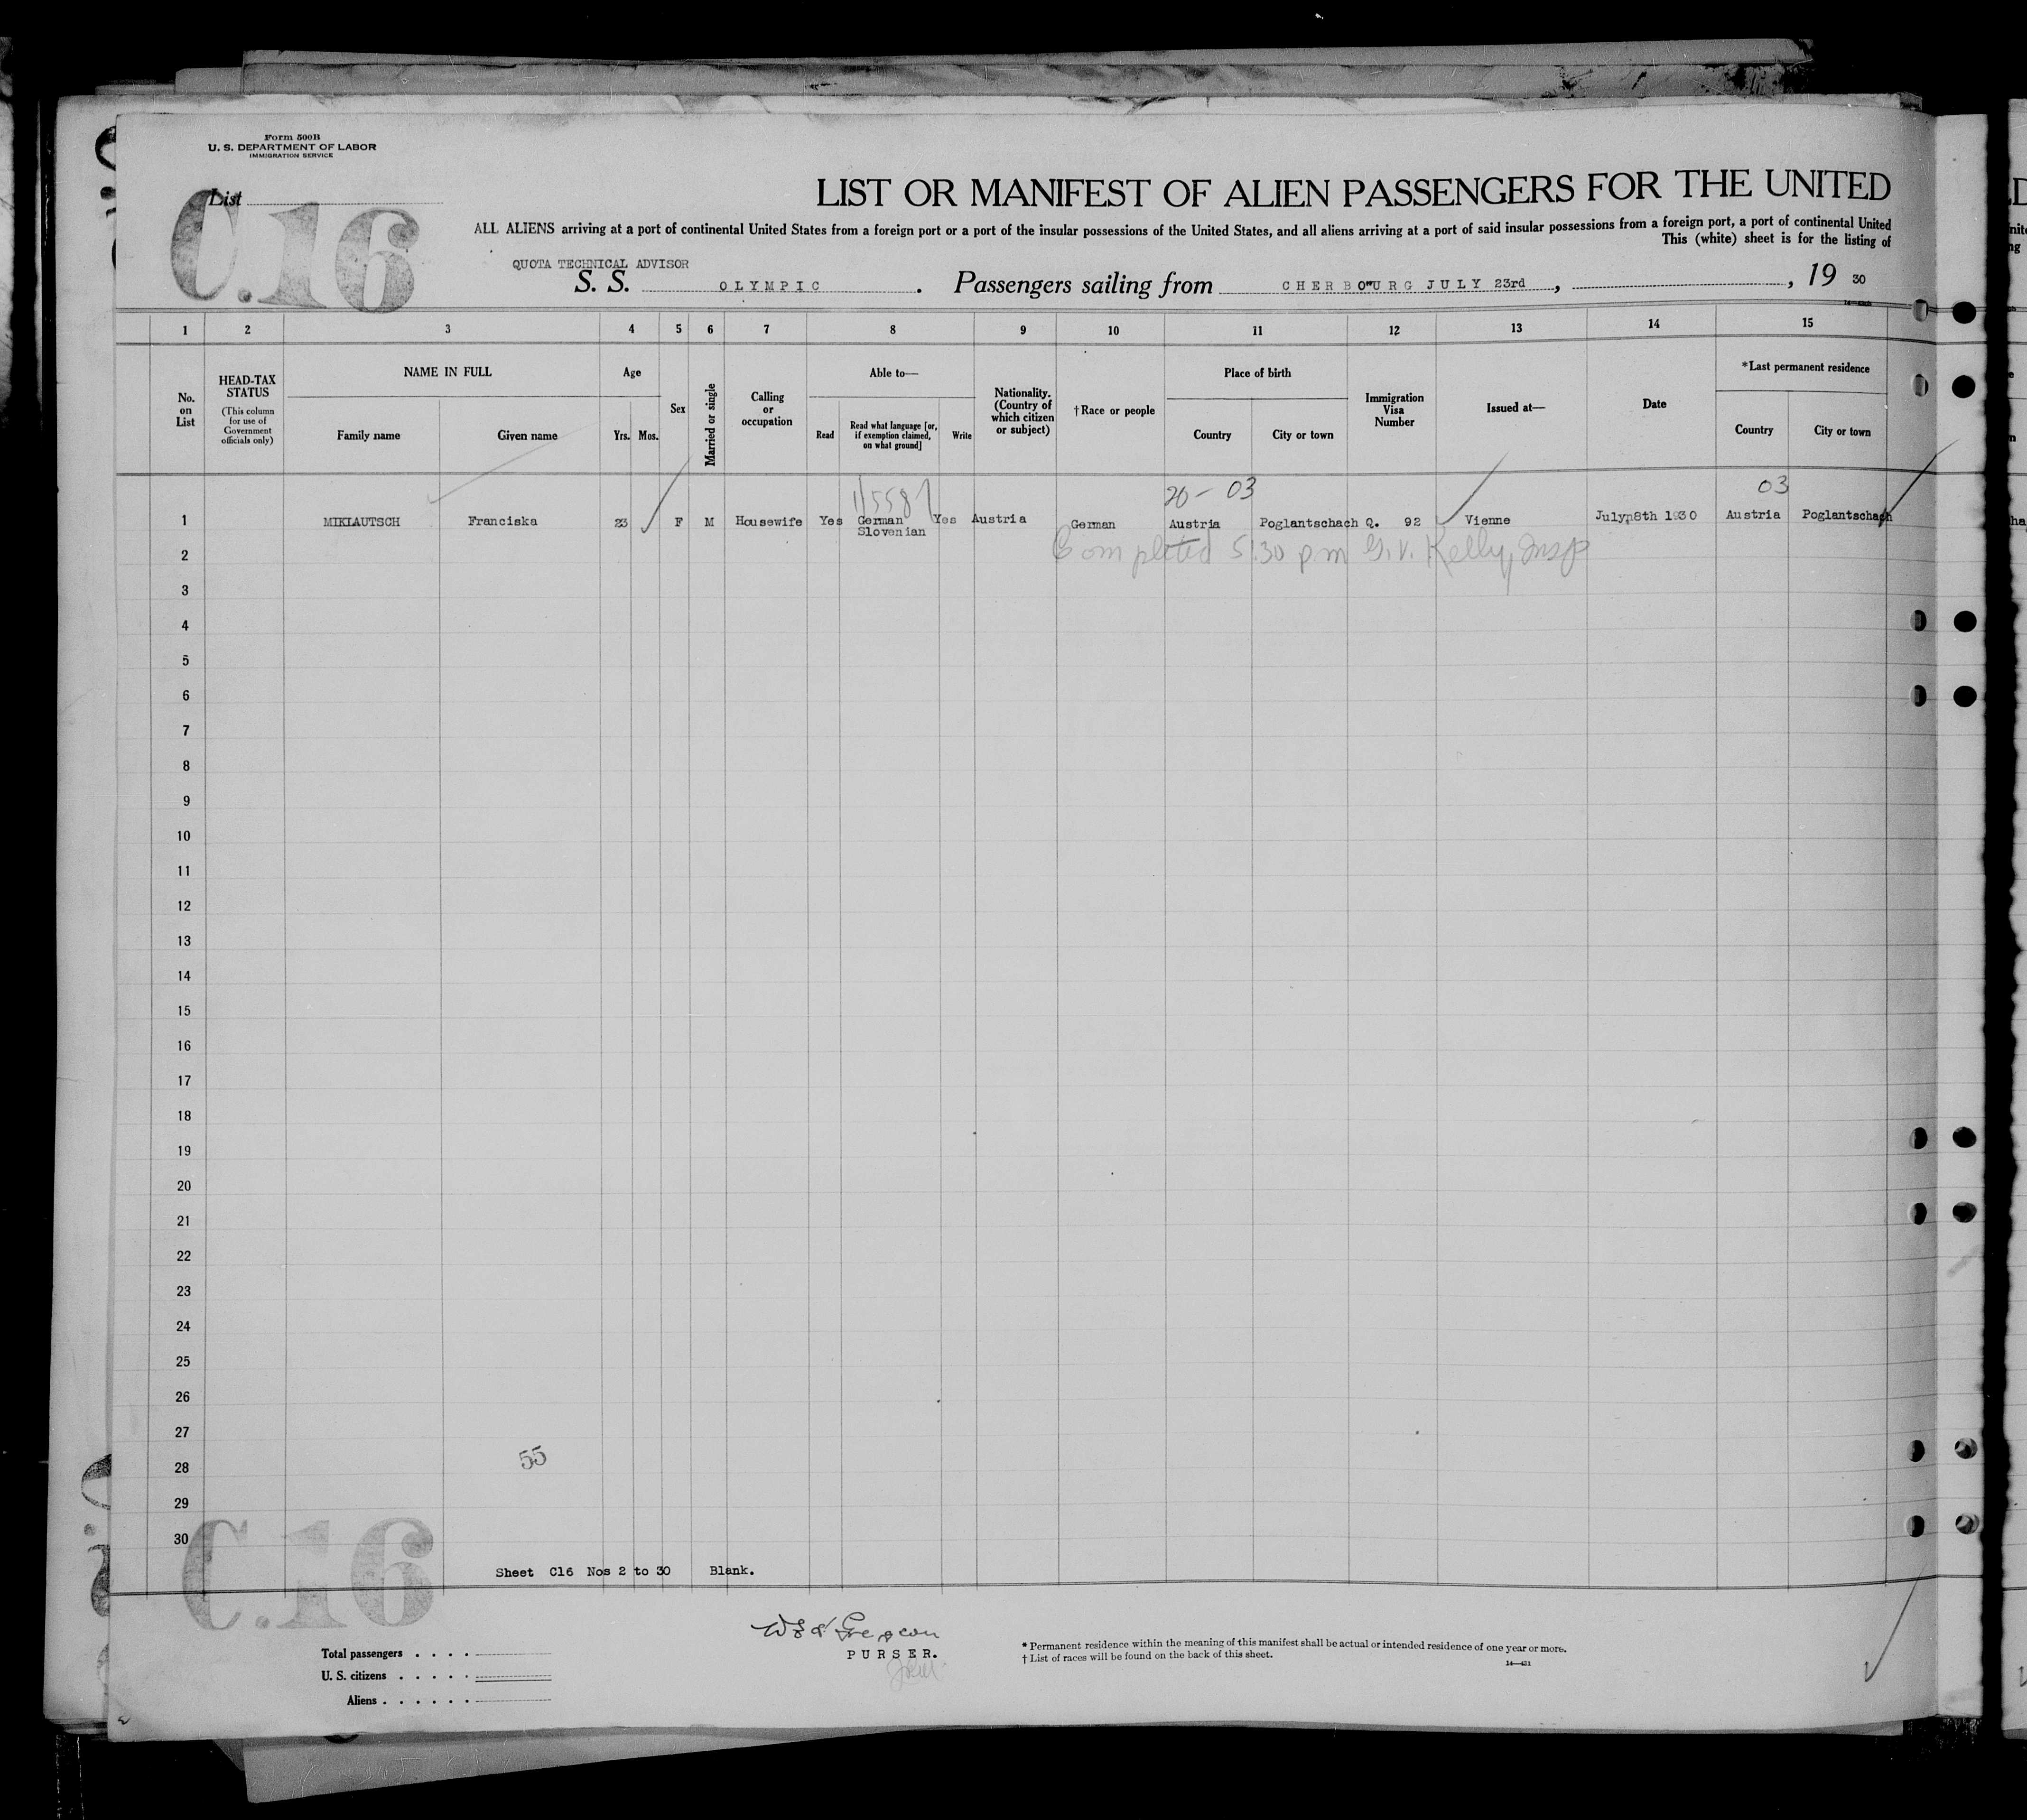 Form 500B
U. S. DEPARTMENT OF LABOR
IMMIGRATION SERVICE
List
C.16
LIST OR MANIFEST OF ALIEN PASSENGERS FOR THE UNITED
ALL ALIENS arriving at a port of continental United States from a foreign port or a port of the insular possessions of the United States, and all aliens arriving at a port of said insular possessions from a foreign port, a port of continental United
This (white) sheet is for the listing of
QUOTA TECHNICAL ADVISOR
S. S. OLYMPIC. Passengers sailing from CHERBOURG JULY 23rd, , 19 30
1 2 3 4 5 6 7 8 9 10 11 12 13 14 15
No. on List
HEAD-TAX STATUS
(This column for use of Government officials only)
NAME IN FULL
Family name Given name
Age
Yrs. Mos.
Sex
Married or single
Calling or occupation
Able to—
Read
Read what language [or, if exemption claimed, on what ground]
Write
Nationality. (Country of which citizen or subject)
† Race or people
Place of birth
Country City or town
Immigration Visa Number
Issued at—
Date
*Last permanent residence
Country City or town
20 - 03 03
1 MIKLAUTSCH Franciska 23 F M Housewife Yes German Yes Austria German Austria Poglantschach Q. 92 Vienne July 8th 1930 Austria Poglantschach
Slovenian
Completed 5:30 pm G.V. Kelly, Insp
2
3
4
5
6
7
8
9
10
11
12
13
14
15
16
17
18
19
20
21
22
23
24
25
26
27
55
28
29
30
C.16
Sheet C16 Nos 2 to 30 Blank.
PURSER.
Total passengers . . . .
U. S. citizens . . . . .
Aliens . . . . . .
* Permanent residence within the meaning of this manifest shall be actual or intended residence of one year or more.
† List of races will be found on the back of this sheet.